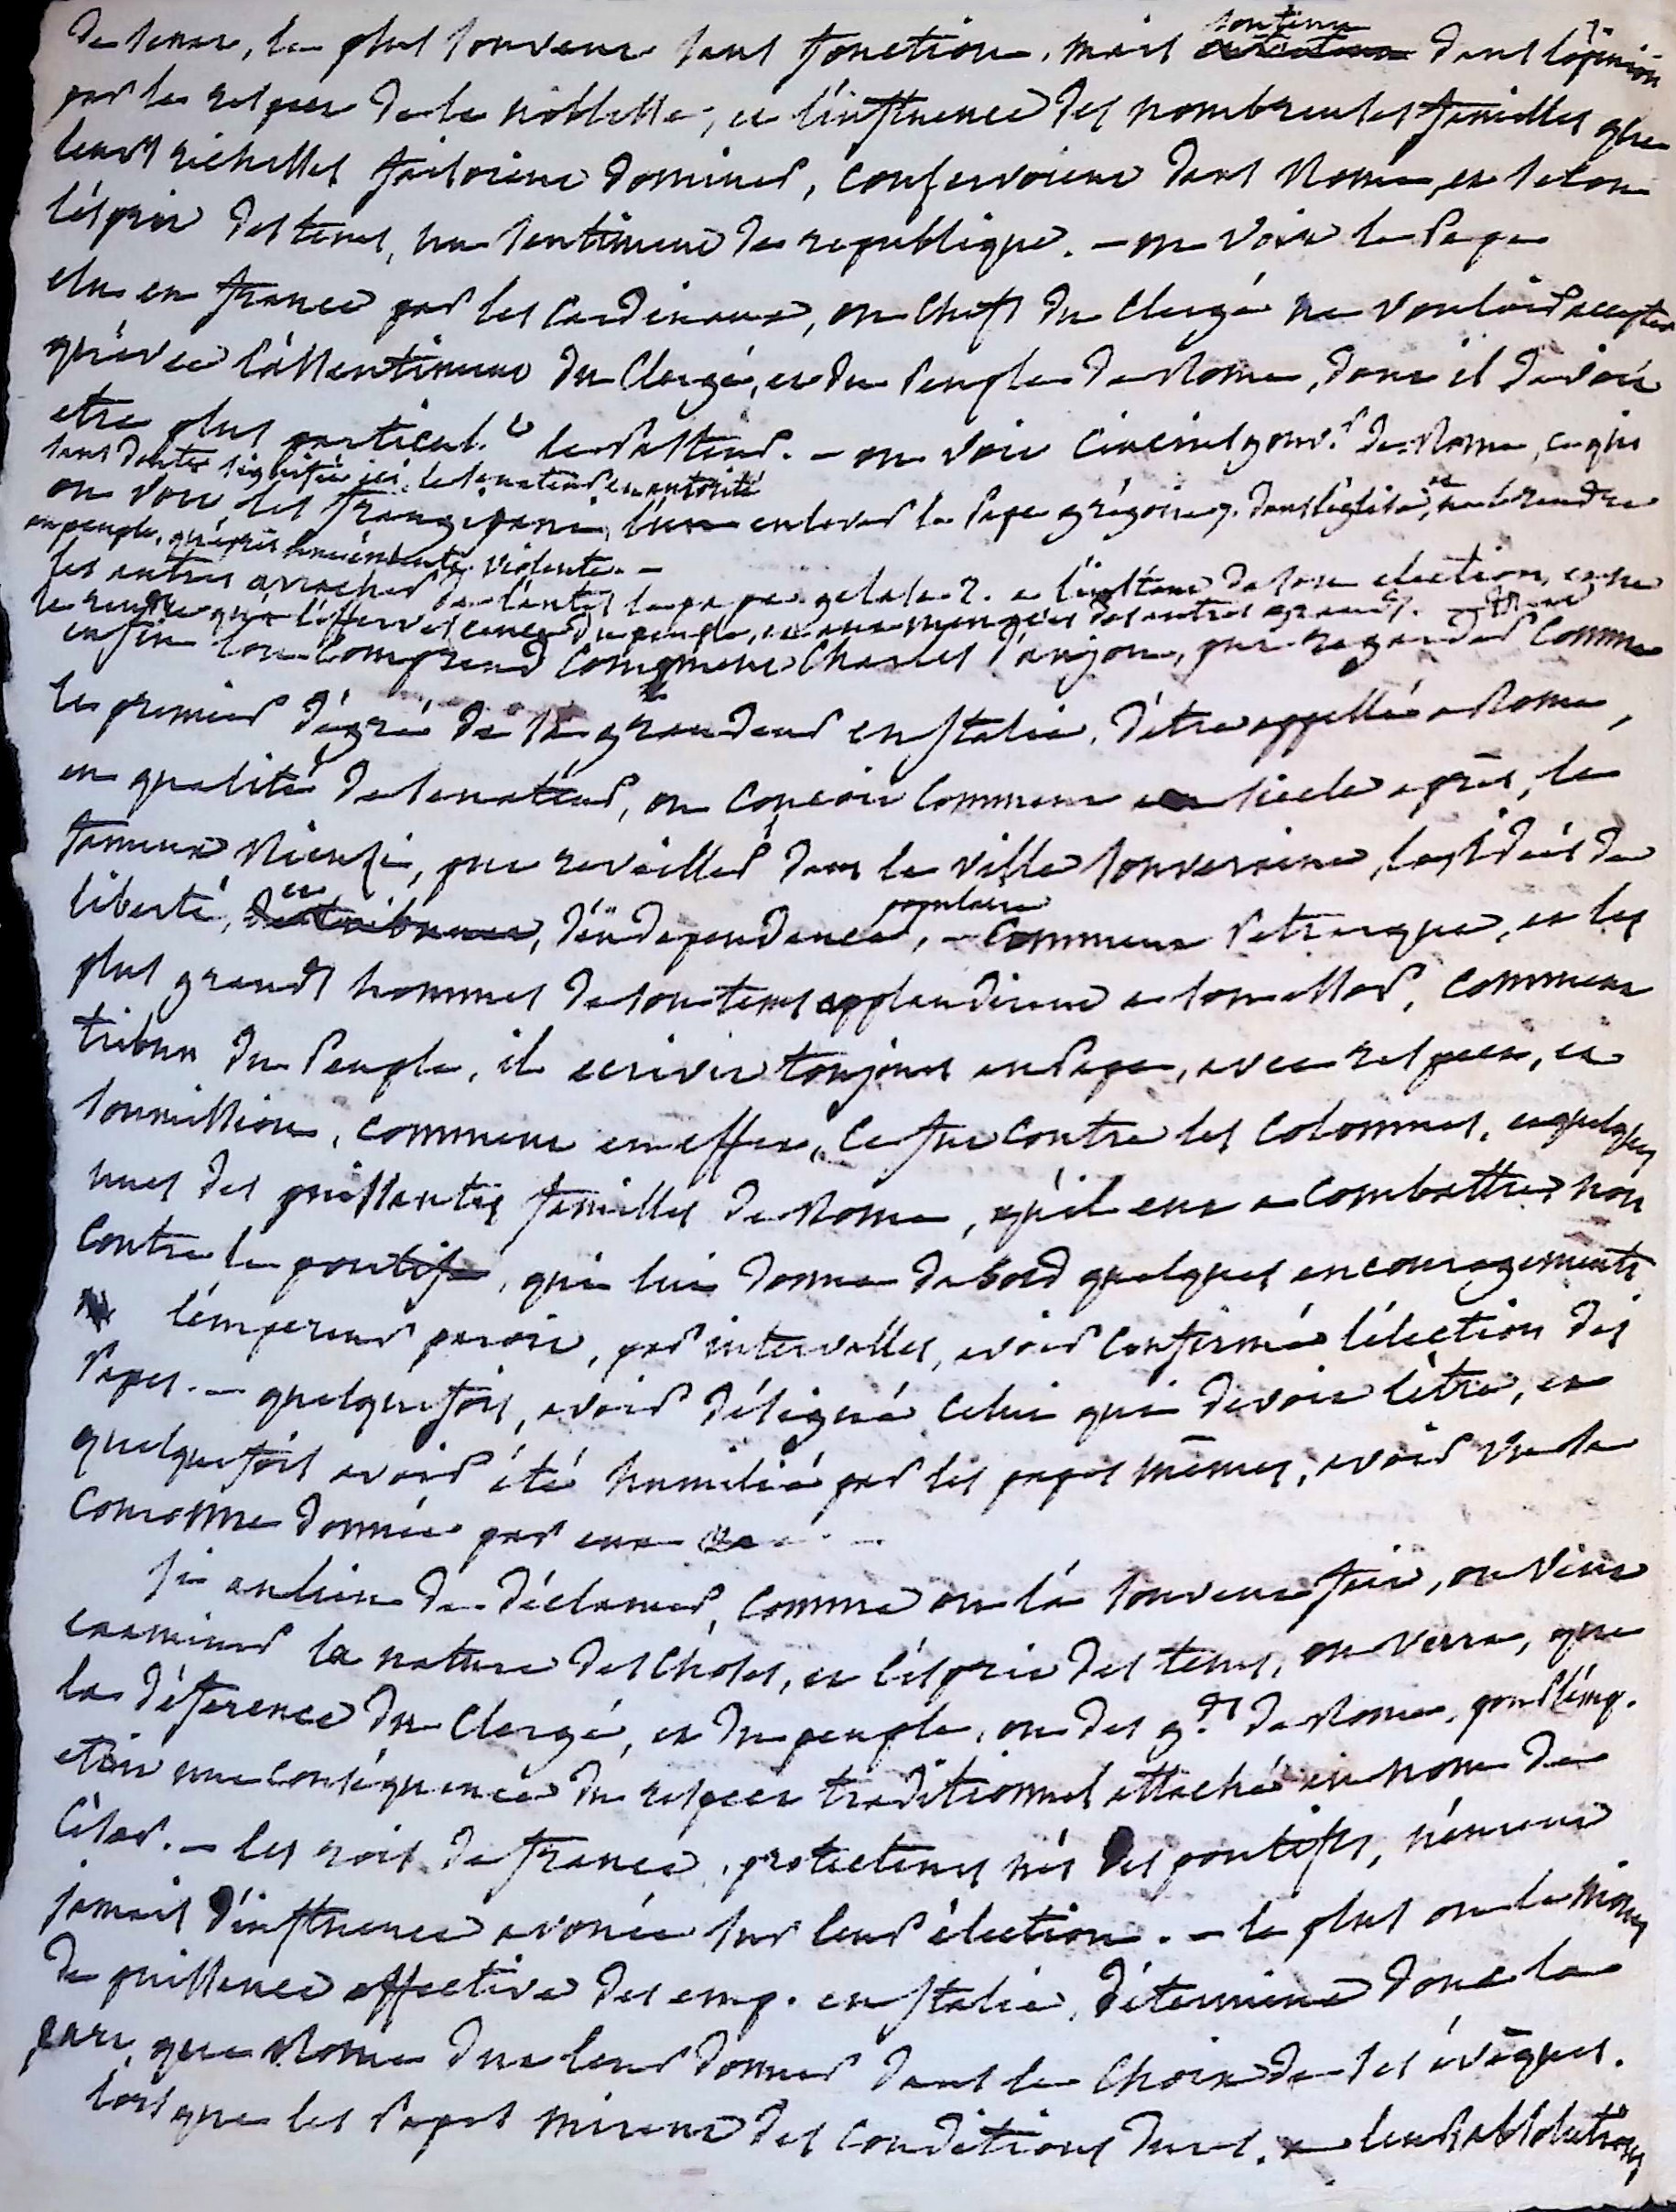 de senat, le plus souvent sans fonctions, mais soutenu dans l'opinion
par le respect de la noblesse, et l'influence des nombreuses familles que
leurs richesses faisoient dominer, conservoient dans Rome, et selon
l'esprit des tems, un sentiment de republique. – on voit le Pape
elu en france par les Cardinaux, ou chefs du Clergé ne vouloir accepter
qu'avec l'assentiment du Clergé, et du Peuple de Rome, dont il devoit
etre plus particul.t le Pasteur. – on voit gouv.r de Rome, ce qui
sans doute signifie ici le senateur en autorité
on voit les frangipani, enlever le Pape grégoire 7. dans l'église, et ne le rendre
au peuple, qu'après une émeute violente. –
les autres arracher de l'autel le pape gelase 2. à l'instant de son election, et ne
le rendre qu'à l'effervescence du peuple, et aux menaces des autres grands. –
enfin l'on comprend comment Charles d'anjou, put regarder comme
le premier dégré de sa grandeur en Italie, d'être appellé a Rome,
en qualité de senateur, on conçoit comment un siecle après, le
fameux Rienzi, put reveiller dans la ville souveraine, les idées de
liberté, et d'indépendance populaire, – comment Petrarque, et les
plus grands hommes de son tems applaudirent a son essor, comment
tribun du Peuple, il ecrivit toujours au Pape, avec respect, et
soumission, comment en effet, ce fut contre les Colonnes, et quelques
unes des puissantes familles de Rome, qu'il eut a combattre, non
contre le pontife, qui lui donna dabord quelques encouragements
l'empereur paroit, par intervalles, avoir confirmé l'élection des
Papes. – quelquefois, avoir désigné celui qui devoit l'être, et
quelquefois avoir été humilié par les papes mêmes, avoir vu la
Couronne donnée par eux
si au lieu de déclamer, comme on l'a souvent fait, on veut
examiner la nature des choses, et l'esprit des tems, on verra, que
la déference du Clergé, et du peuple, ou des g.ds de Rome, pour l'emp.
etoit une conséquence du respect traditionnel attaché au nom de
César. – les rois de france, protecteurs nés des pontifes, n'eurent
jamais d'influence avouée sur leur élection. – le plus ou le moins
de puissance effective des emp. en Italie, détermina donc la
part, que Rome dut leur donner dans le choix de ses évêques.
lorsque les Papes mirent des conditions dures, a leurs absolutions